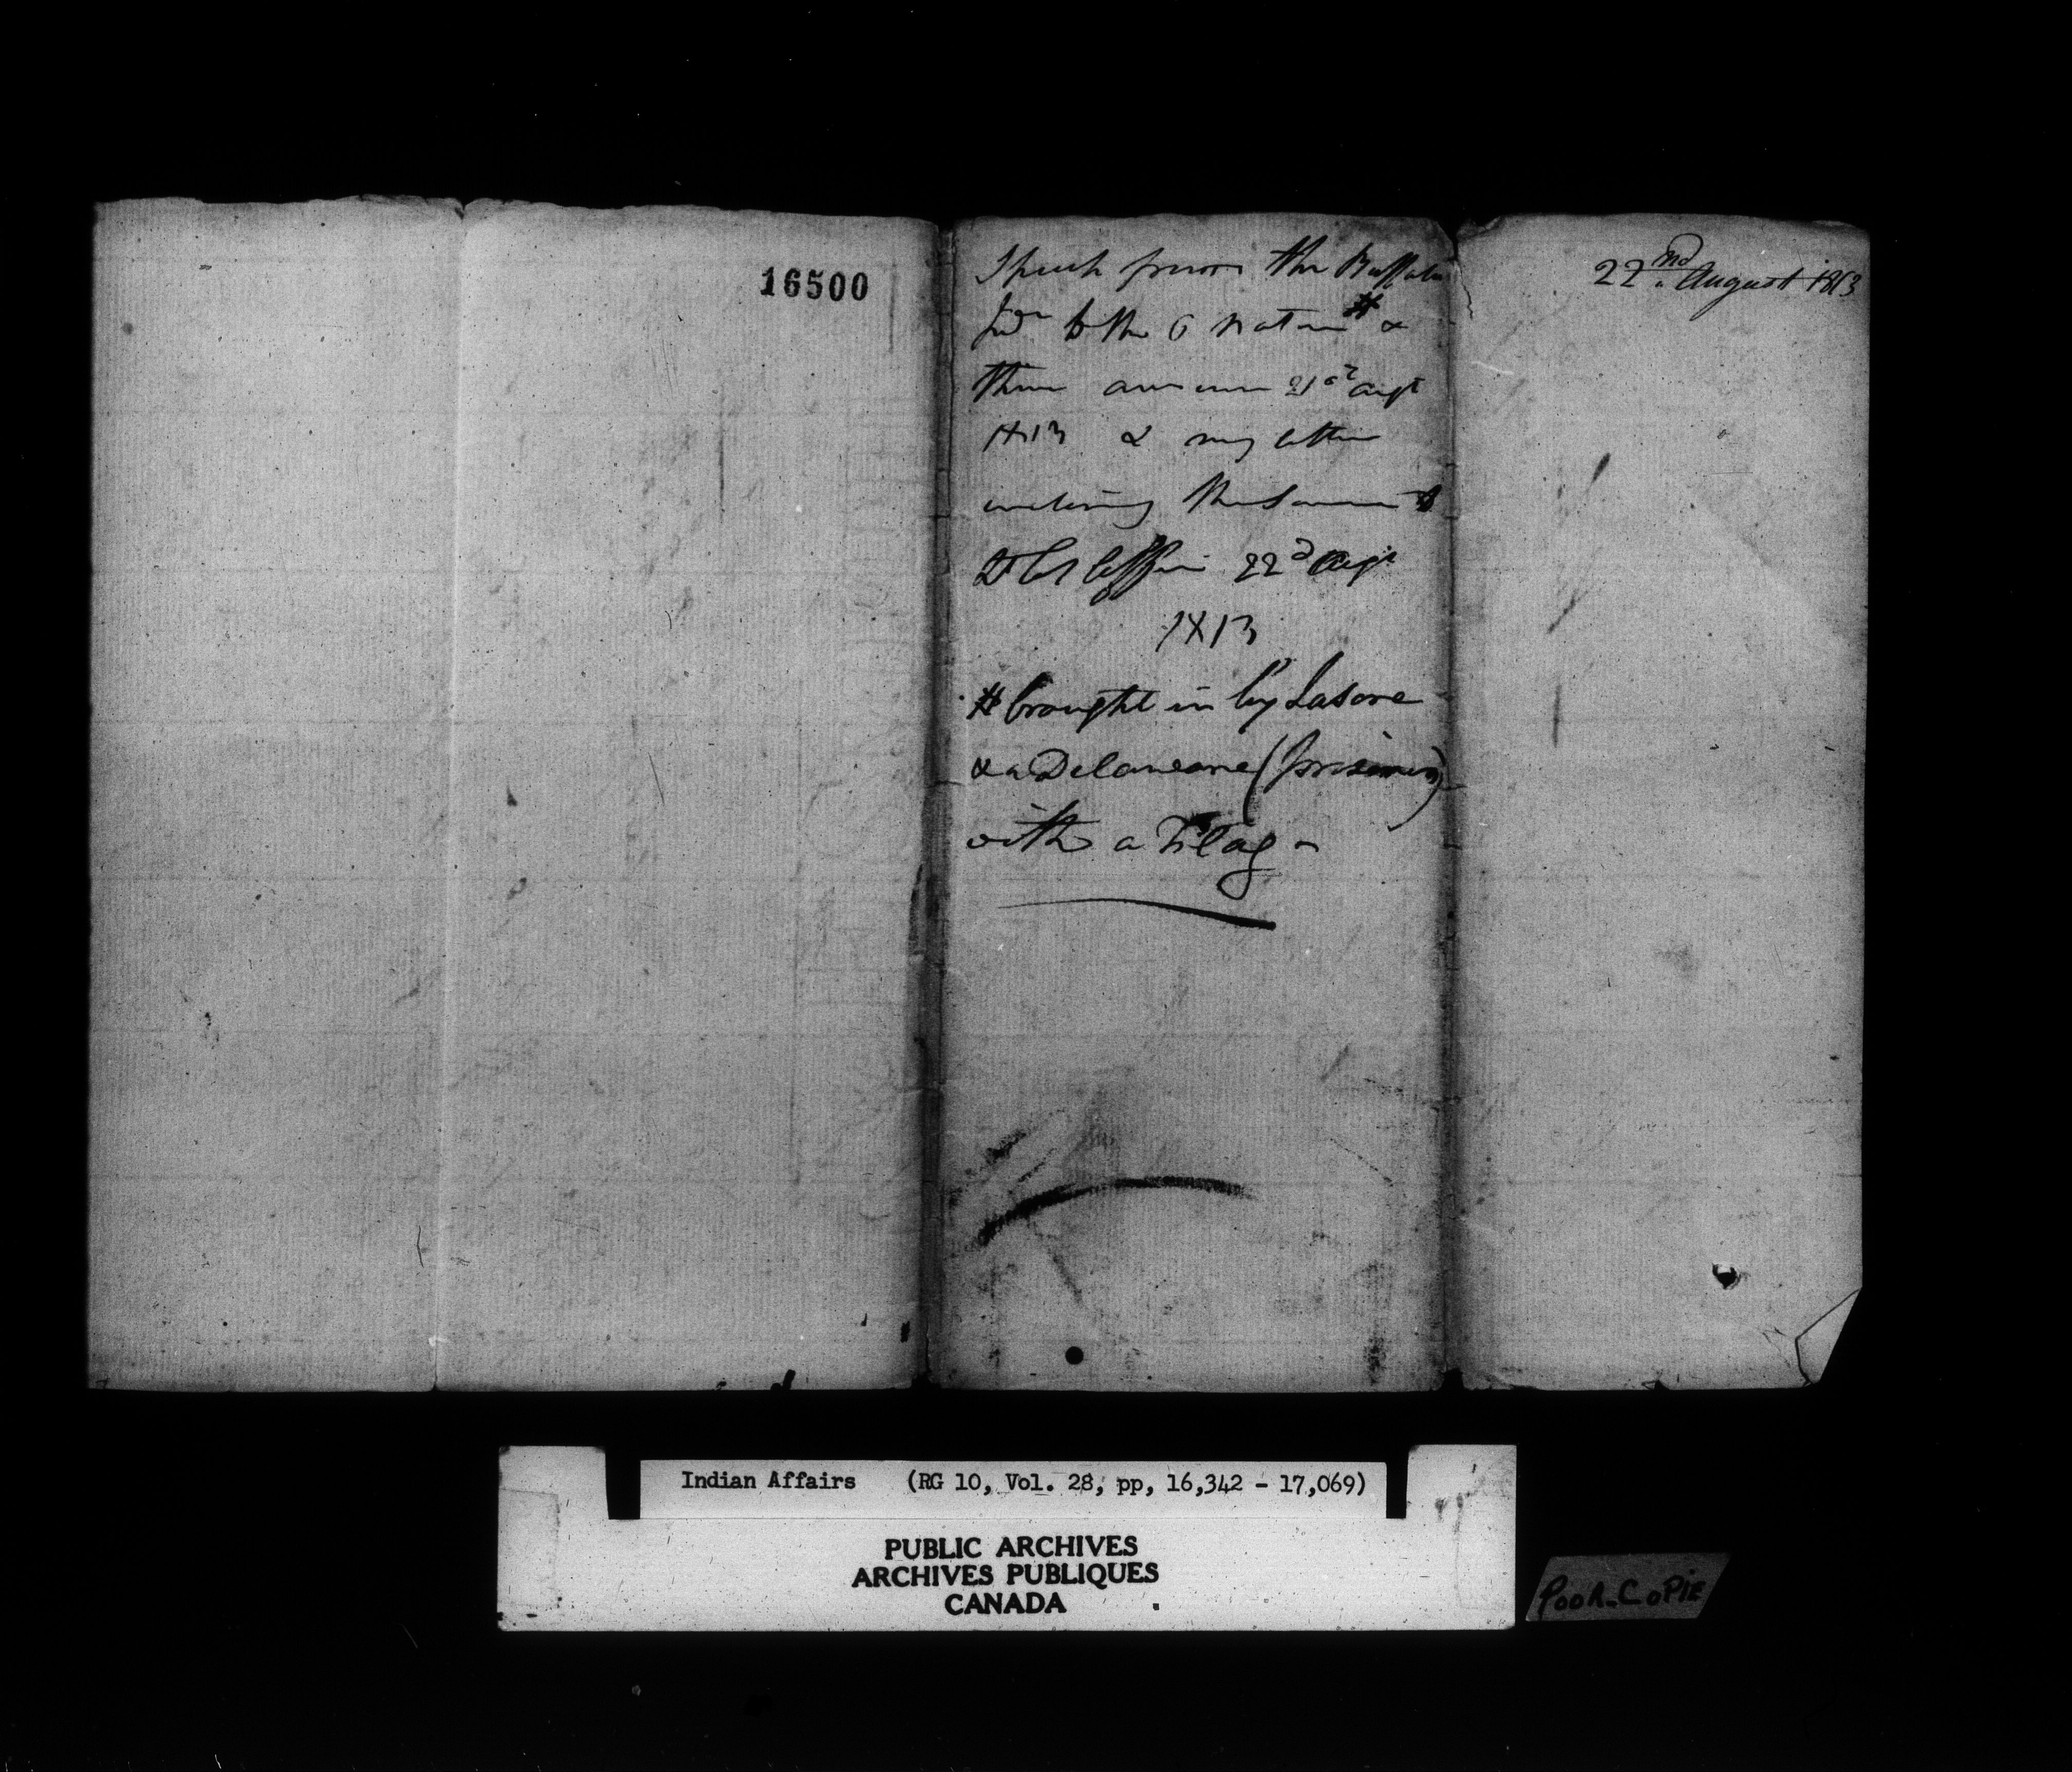 16500
Speech from the Buffalo
Inds to the 6 Nations # &
their answer 21st Augt
1813 & my letter
enclosing the same to
D C G Coffin 22d Augt
1813
# brought in by Lasore
& a Delaware (prisoners)
with a Flag -
22nd August 1813
Indian Affairs (RG 10, Vol. 28, pp, 16,342 - 17,069)
PUBLIC ARCHIVES
ARCHIVES PUBLIQUES
CANADA
POOR-COPIE